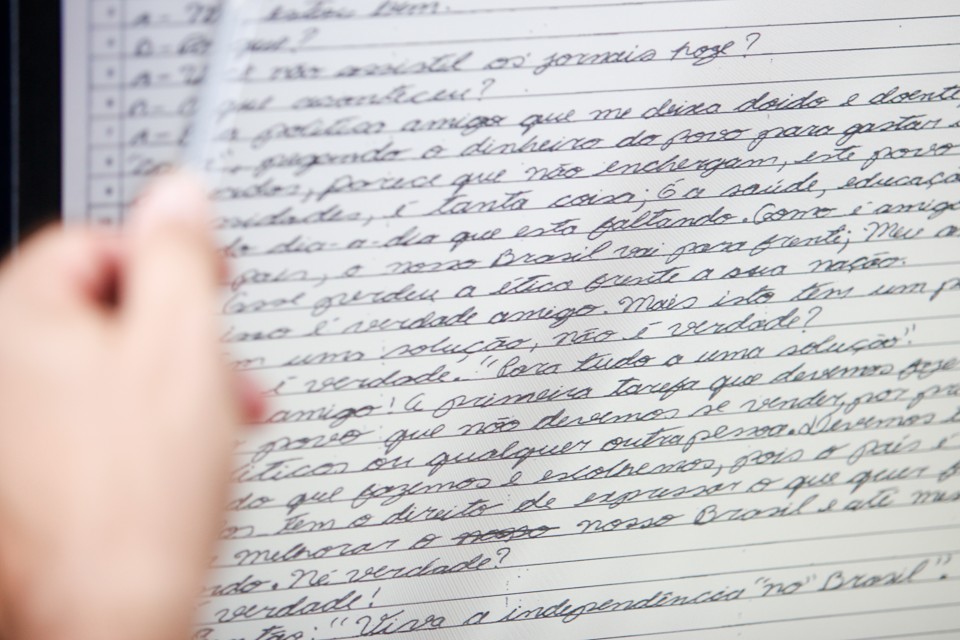 estou bem.
que?
não assistil os jornais hoze?
que aconteceu?
politica amigo que me deixa doido e doente
pegando o dinheiro do povo para gastar
parece que não enchergam, este povo
é tanta coisa; É a saúde, educaçã
dia-a-dia que esta faltando. Como é amigo
pais, o nosso Brasil vai para frente; Meu
Esse perdeu a etica frente a sua nação.
é verdade amigo. Mais isto tem um
uma solução, não é verdade?
é verdade. "Para tudo a uma solução".
amigo! A primeira tarefa que devemos
povo que não devemos se vender, por
ou qualquer outra pessoa. Devemos
que fazemos e escolhemos, pois o pais é
tem o direito de expressar o que quer
melhorar o nosso nosso Brasil e até
Né verdade?
verdade!
"Viva a independência "no" Brasil".